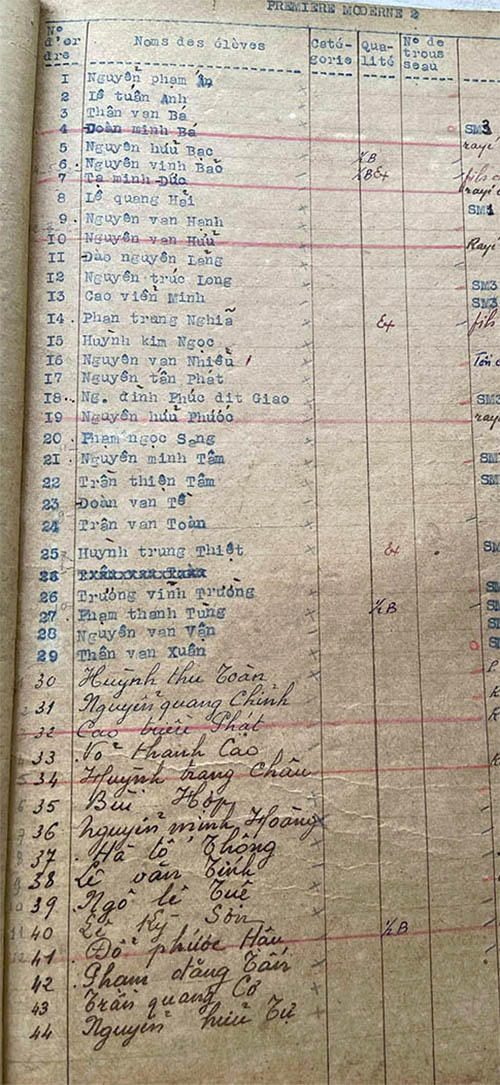 PREMIERE MODERNE 2
N° d'or dre | Noms des élèves | Caté- gorie | Qua- lité | N° de trous seau
1 Nguyễn phạm Ẩn
2 Lê tuấn Anh
3 Thân van Ba
4 Đoàn minh Bá SM3
5 Nguyễn hữu Bạc rayé
6 Nguyễn vinh Bảo ½B
7 Tạ minh Đức ½B Ex fils
8 Lê quang Hải rayé
9 Nguyễn van Hạnh SM1
10 Nguyễn van Hữu Rayé
11 Đào nguyên Lãng
12 Nguyễn trúc Long SM3
13 Cao viễn Minh SM3
14 Phan trung Nghĩa Ex fils
15 Huỳnh kim Ngọc
16 Nguyễn van Nhiều
17 Nguyễn tấn Phát
18 Ng. đinh Phúc dit Giao SM3
19 Nguyễn hữu Phước rayé
20 Phạm ngọc Sang
21 Nguyễn minh Tâm SM
22 Trần thiện Tâm SM
23 Đoàn van Tề
24 Trần van Toàn
25 Huỳnh trung Thiệt Ex SM
26 Trương vinh Trường
27 Phạm thanh Tùng ½B
28 Nguyễn van Vận
29 Thân van Xuân
30 Huỳnh thu Toàn
31 Nguyễn quang Chỉnh
32 Cao triều Phát
33 Võ thanh Cao
34 Huỳnh trang Châu
35 Bùi Hợp
36 Nguyễn minh Hoàng
37 Hà tô Thông
38 Lê văn Tính
39 Ngô lê Tuê
40 Lê Kỳ Sơn ½B
41 Đỗ phước Hậu
42 Phạm đăng Tấn
43 Trần quang Cơ
44 Nguyễn hữu Tự